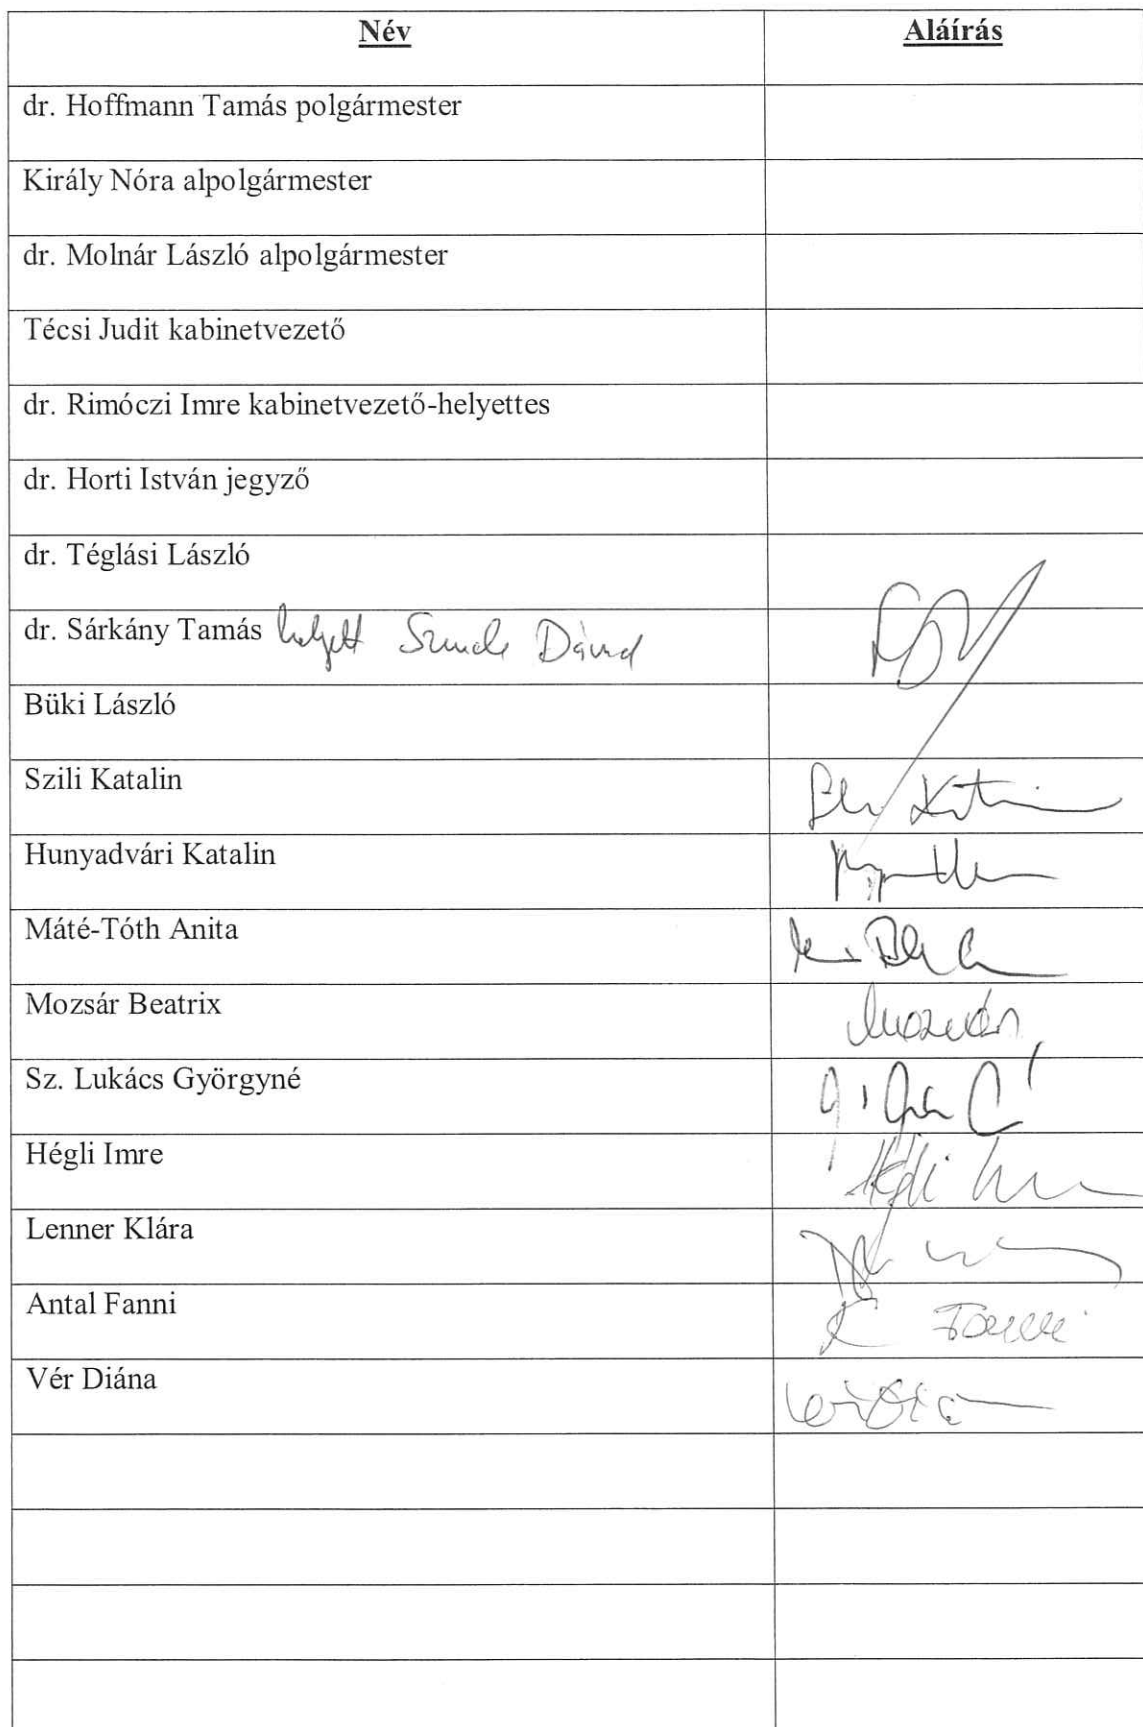 Név Aláírás
dr. Hoffmann Tamás polgármester
Király Nóra alpolgármester
dr. Molnár László alpolgármester
Técsi Judit kabinetvezető
dr. Rimóczi Imre kabinetvezető-helyettes
dr. Horti István jegyző
dr. Téglási László
dr. Sárkány Tamás helyett Dávid
Büki László
Szili Katalin
Hunyadvári Katalin
Máté-Tóth Anita
Mozsár Beatrix
Sz. Lukács Györgyné
Hégli Imre
Lenner Klára
Antal Fanni Fanni
Vér Diána